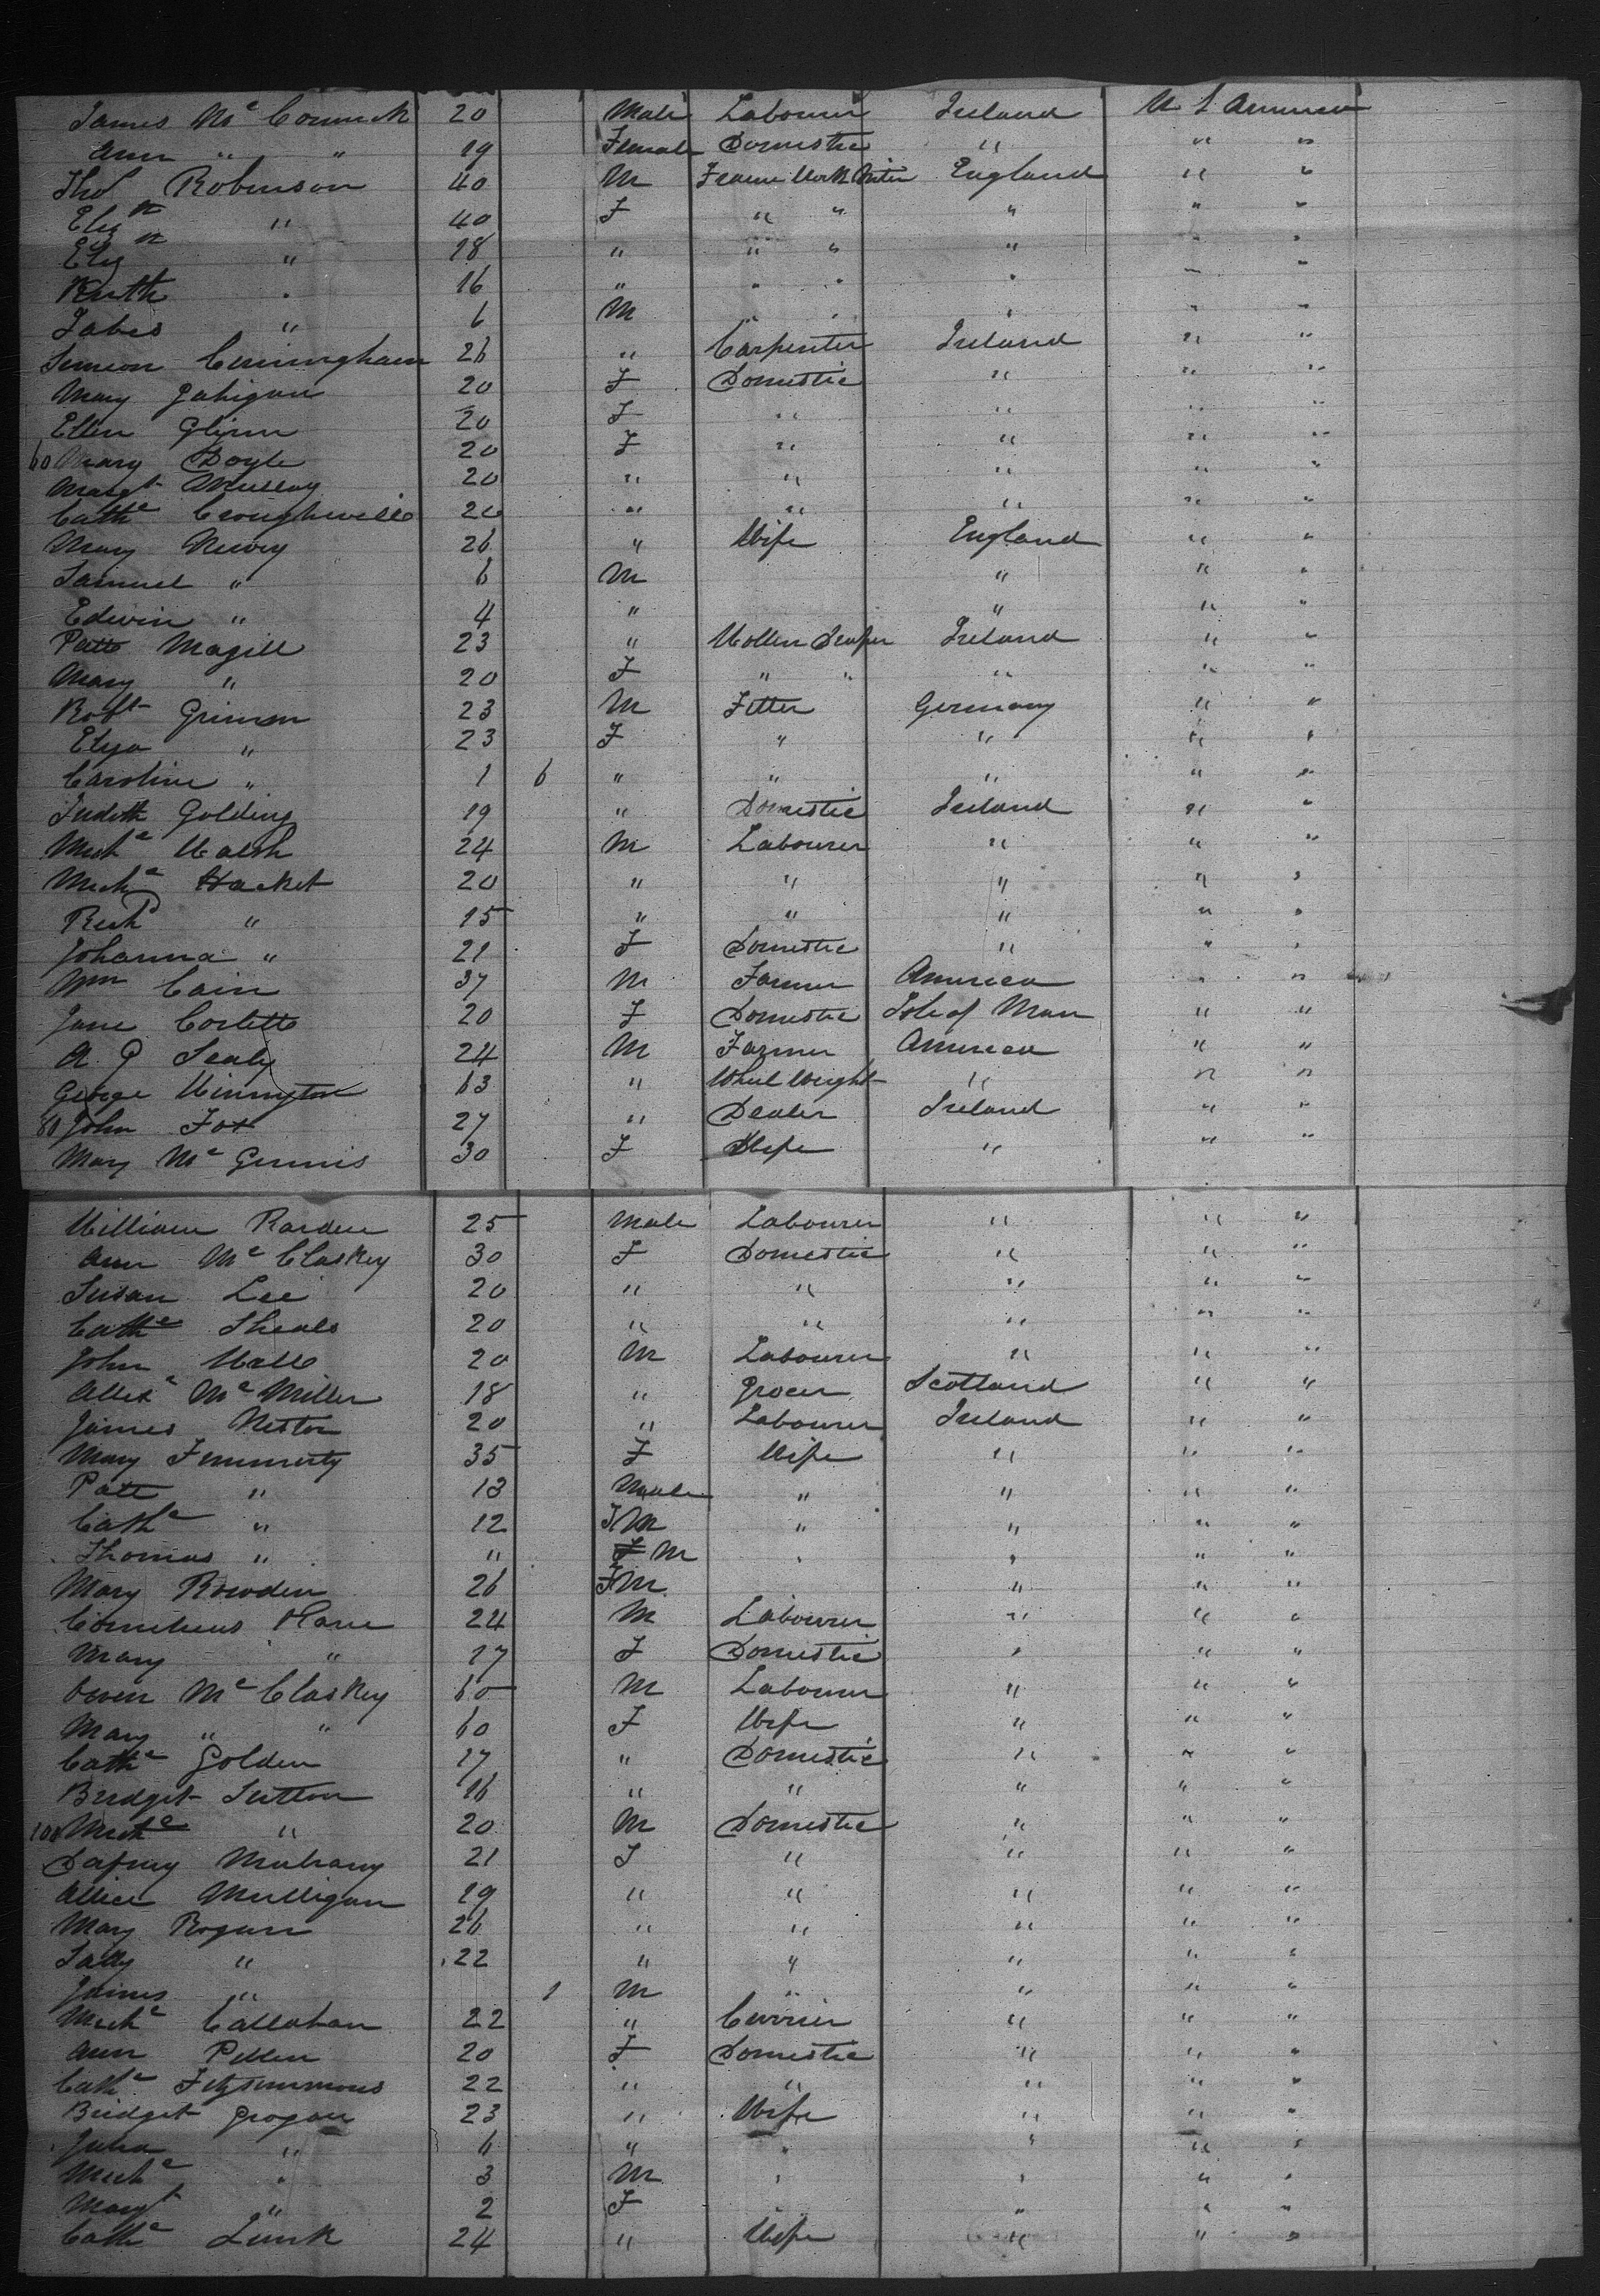 James Mc Cormick 20 Male Labourer Ireland U S America
Ann " " 19 Female Domestic " " "
Thos Robinson 40 M Frame Work Niter England " "
Elizth " 40 F " " " " "
Elizth " 18 " " " " " "
Ruth " 16 " " " " " "
Jabes " 6 M " " " " "
Simeon Cunningham 26 " Carpenter Ireland " "
Mary Gahigan 20 F Domestic " " "
Ellen Glynn 20 F " " " "
60 Mary Doyle 20 F " " " "
Margt Mullay 20 " " " " "
Cathe Croughwell 20 " " " " "
Mary Newey 26 " Wife England " "
Samuel " 6 M " " "
Edwin " 4 " " " "
Patt Magill 23 " Wollen Draper Ireland " "
Mary " 20 F " " " " "
Robt Grimm 23 M Fitter Germany " "
Elyza " 23 F " " " "
Caroline " 1 6 " " " " "
Judith Golding 19 " Domestic Ireland " "
Michl Walsh 24 M Labourer " " "
Michl Hacket 20 " " " " "
Richd " 15 " " " " "
Johanna " 21 F Domestic " " "
Wm Cain 37 M Farmer America " "
Jane Corlett 20 F Domestic Isle of Man " "
A. P Sealy 24 M Farmer America " "
George Winnington 63 " Wheel Wright " " "
80 John Fox 27 " Dealer Ireland " "
Mary Mc Ginnis 30 F Wife " " "
William Rarden 25 Male Labourer " " "
Ann Mc Claskey 30 F Domestic " " "
Susan Lee 20 " " " " "
Cathe Sheals 20 " " " " "
John Wall 20 M Labourer " " "
Allexr Mc Miller 18 " Grocer Scotland " "
James Nestor 20 " Labourer Ireland " "
Mary Fimmerty 35 F Wife " " "
Patt " 13 Male " " " "
Cathe " 12 F M " " " "
Thomas " " F M " " " "
Mary Rowden 26 F M " " "
Cornelieus Kane 24 M Labourer " " "
Mary " 17 F Domestic " " "
Owen Mc Claskey 60 M Labourer " " "
Mary " " 60 F Wife " " "
Cathe Golden 17 " Domestic " " "
Bridget Sutton 16 " " " " "
100 Michl " 20 M Domestic " " "
Dafney Mulrany 21 F " " " "
Allice Mulligan 19 " " " " "
Mary Rogan 26 " " " " "
Sally " 22 " " " " "
James " 1 M " " " "
Michl Callahan 22 " Currier " " "
Ann Pillen 20 F Domestic " " "
Cathe Fitzsimmons 22 " " " " "
Bridget Grogan 23 " Wife " " "
Julia " 6 " " " " "
Michl " 3 M " " " "
Margt " 2 F " " "
Cathe Lunk 24 " Wife " " "